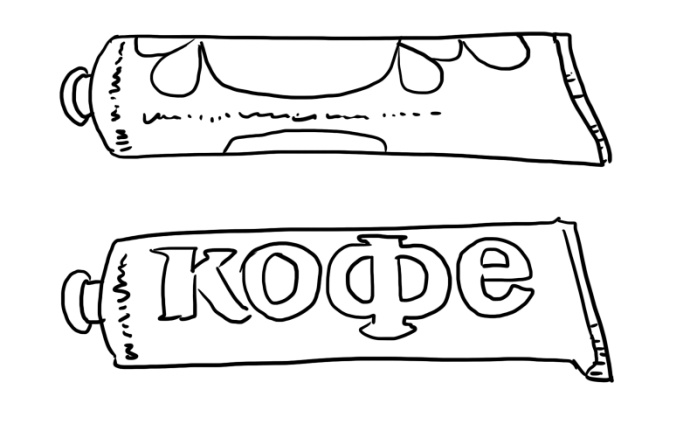 кофе